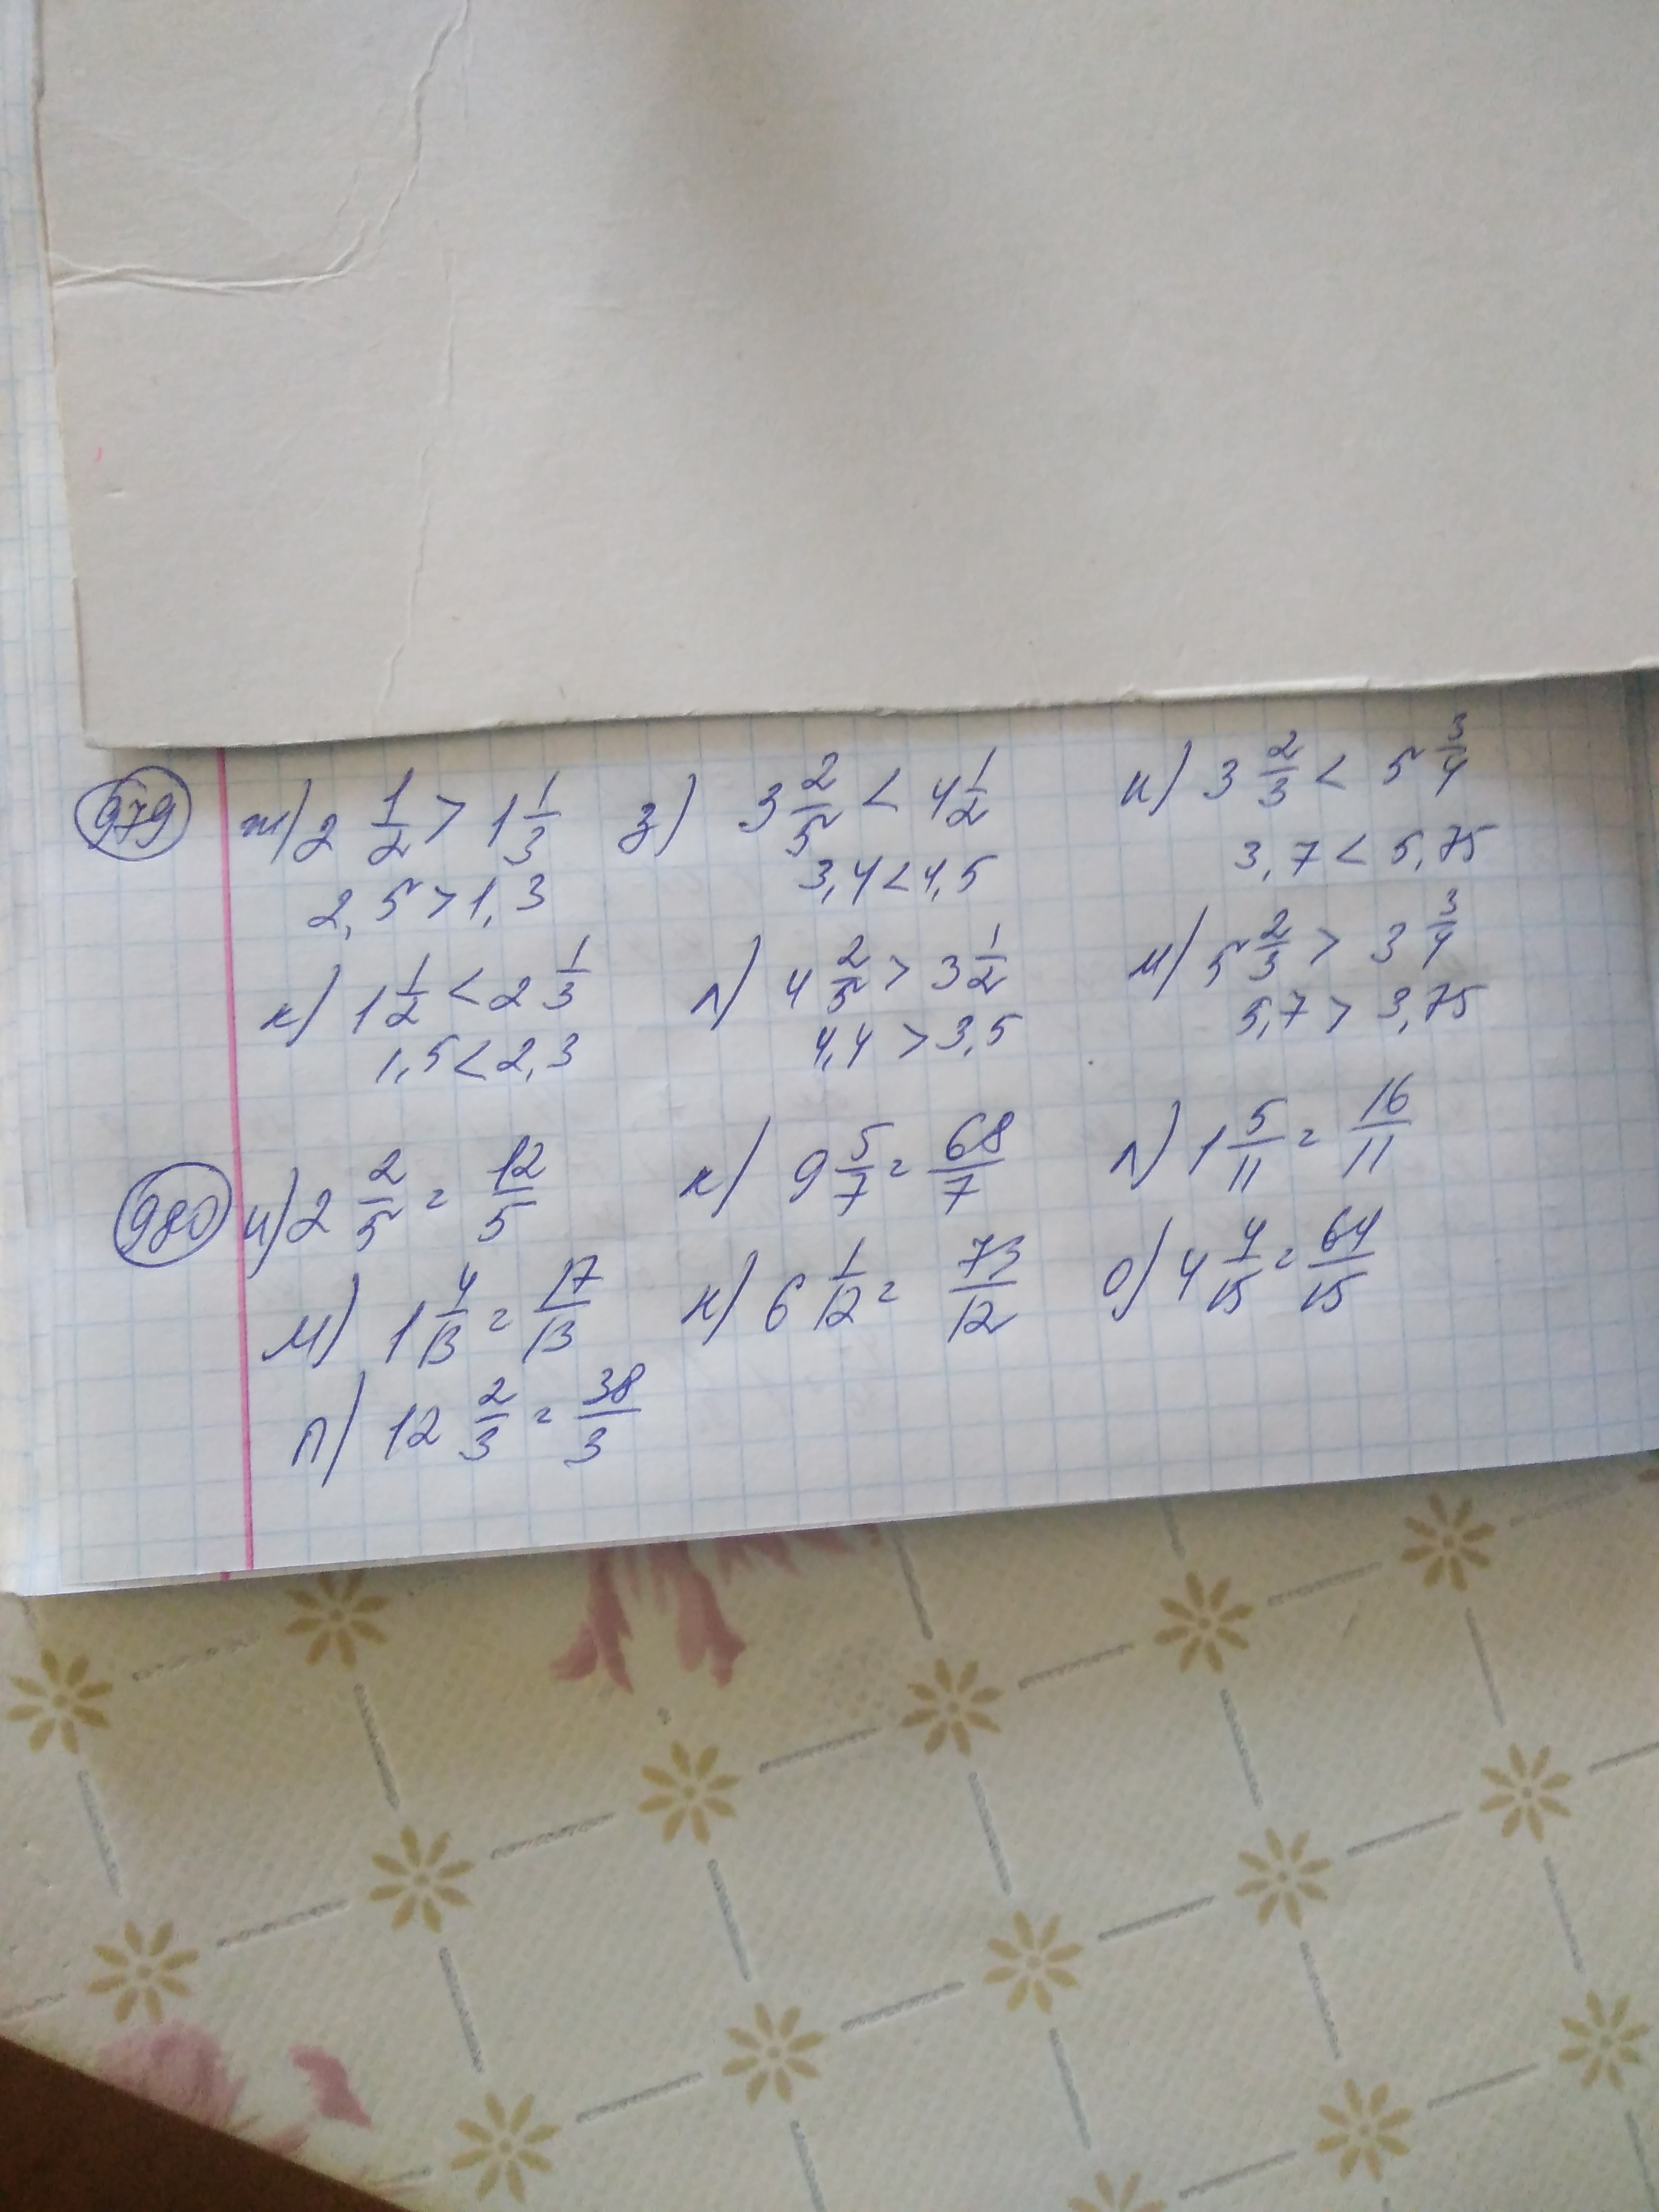 979 ж) 2 1/2 > 1 1/3 з) 3 2/5 < 4 1/2 и) 3 2/3 < 5 3/4
2,5 > 1,3 3,4 < 4,5 3,7 < 5,75
к) 1 1/2 < 2 1/3 л) 4 2/5 > 3 1/2 м) 5 2/3 > 3 3/4
1,5 < 2,3 4,4 > 3,5 5,7 > 3,75
980 и) 2 2/5 = 12/5 к) 9 5/7 = 68/7 л) 1 5/11 = 16/11
м) 1 4/13 = 17/13 н) 6 1/12 = 73/12 о) 4 4/15 = 64/15
п) 12 2/3 = 38/3